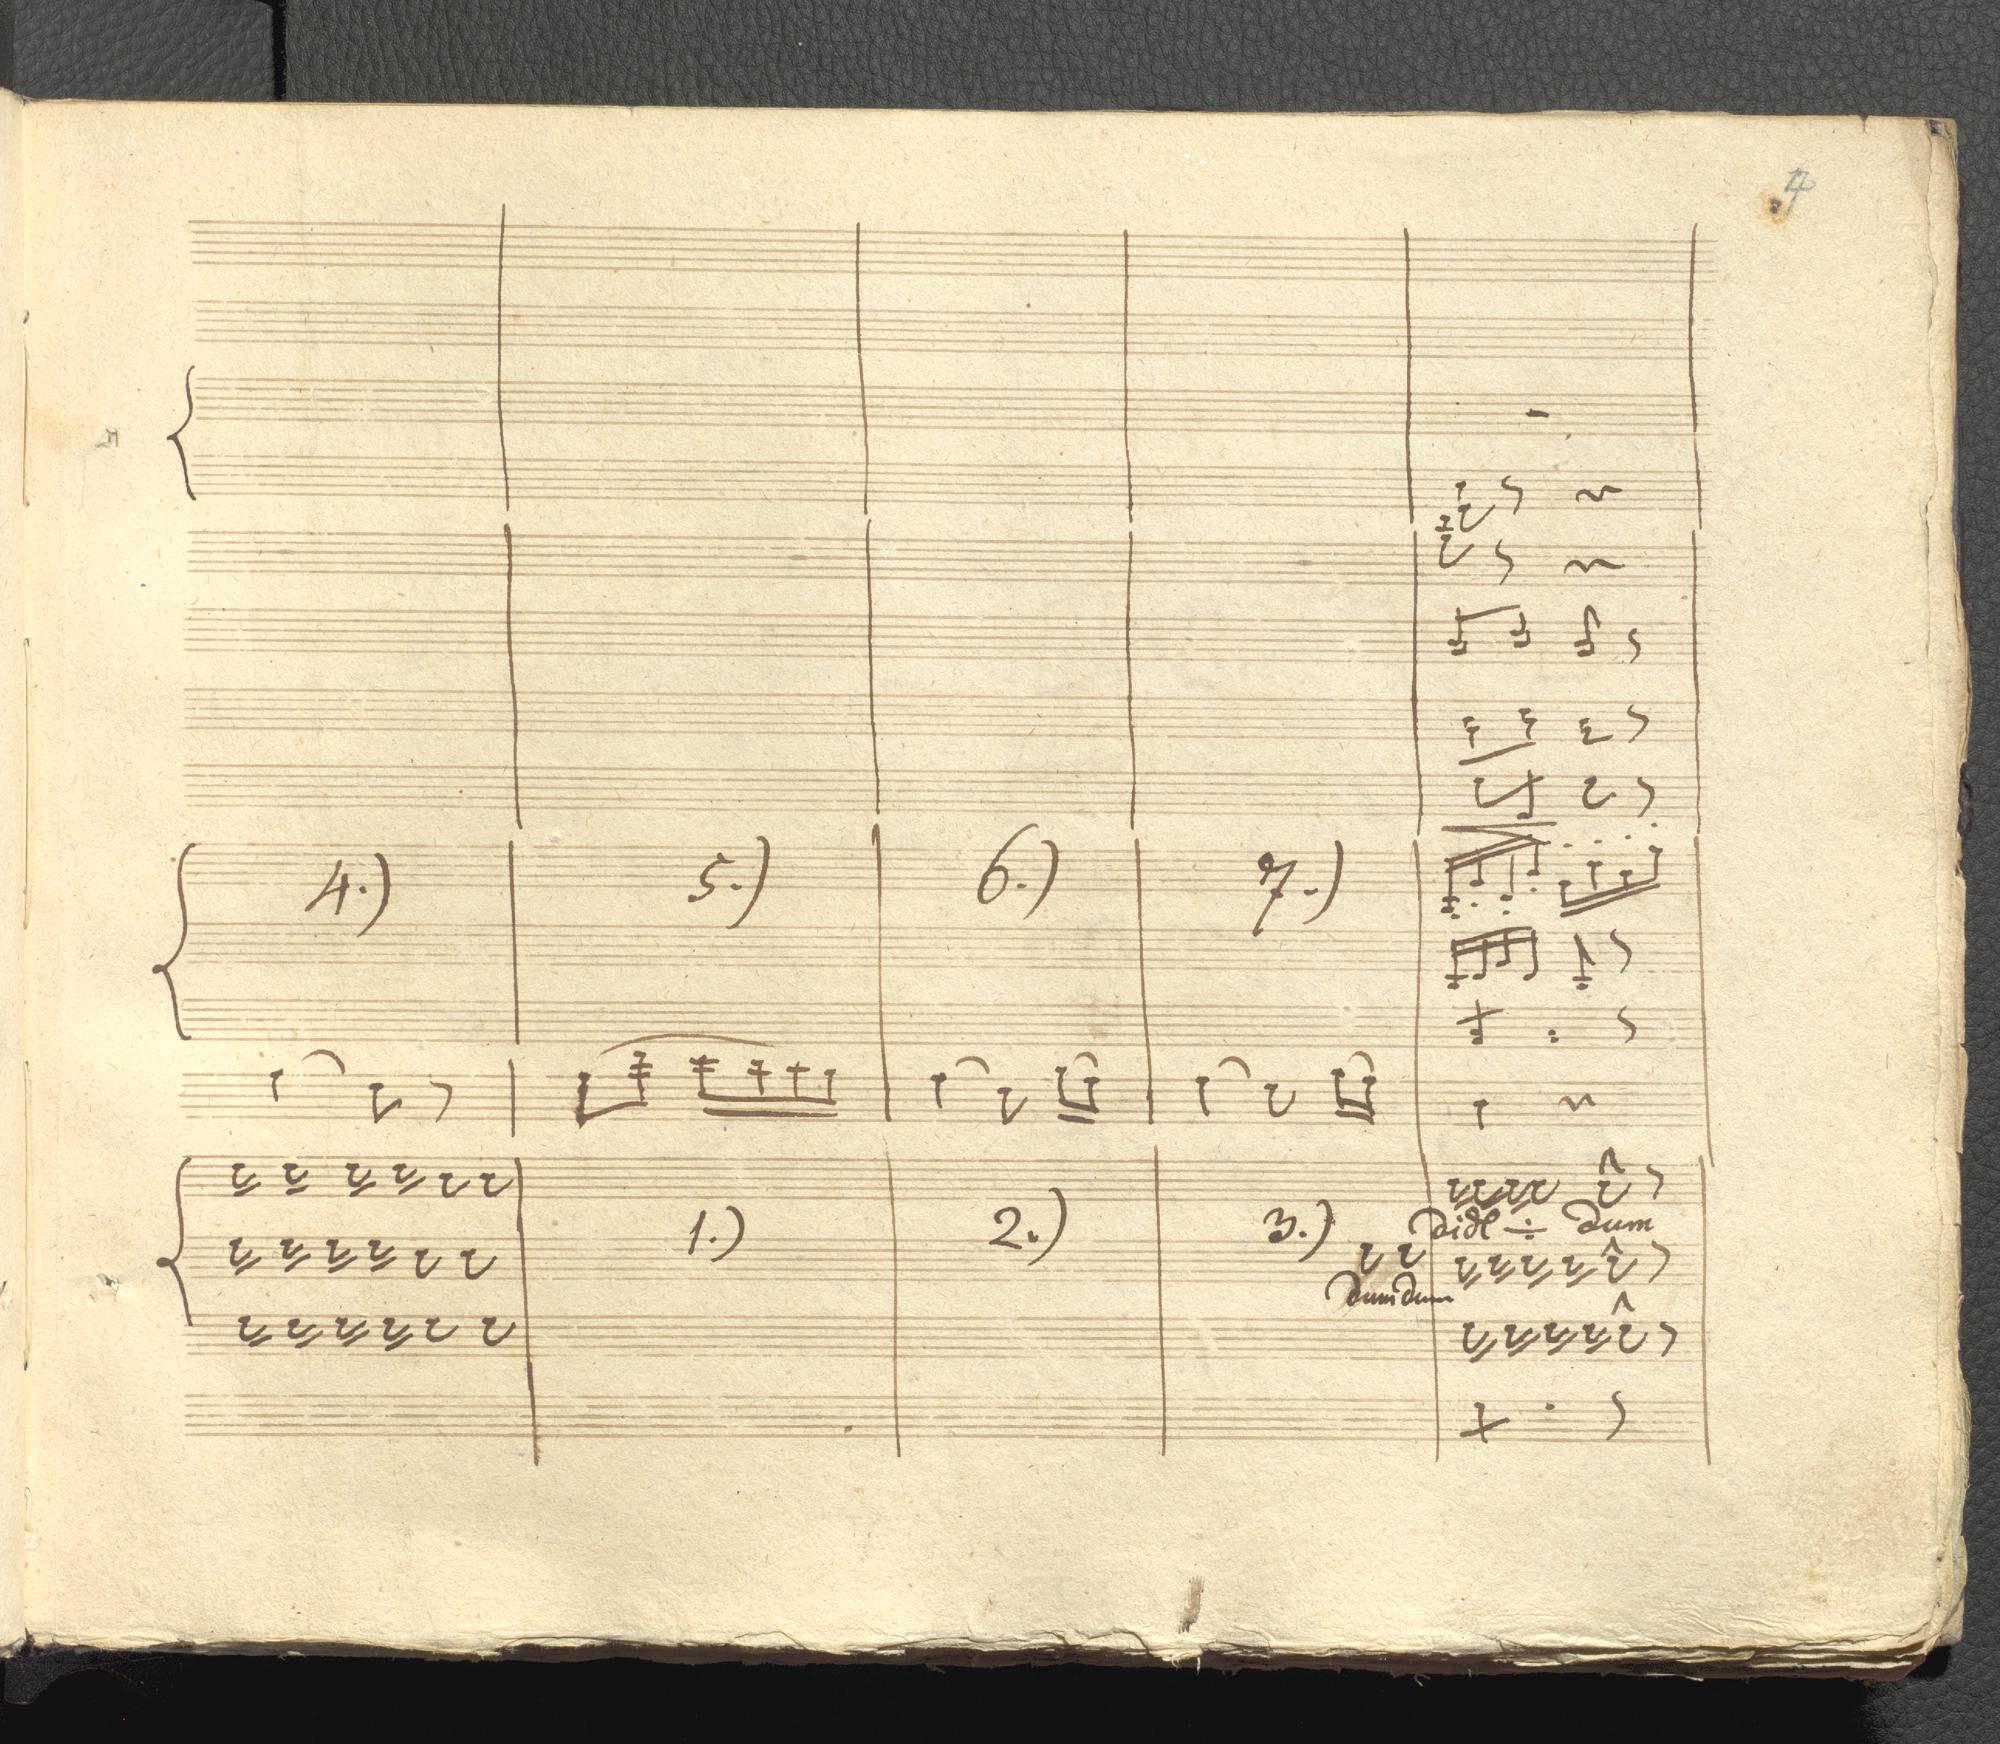 4.) 5.) 6.) 7.)
1.) 2.) 3.)
Didl ÷ Dum
DumDum